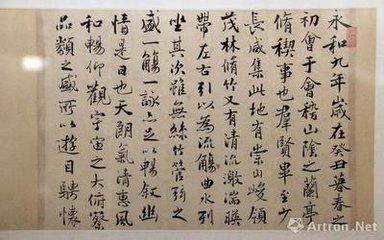 永和九年歲在癸丑暮春之
初會于會稽山陰之蘭亭
脩禊事也羣賢畢至少
長咸集此地有崇山峻領
茂林脩竹又有清流激湍暎
帶左右引以為流觴曲水列
坐其次雖無絲竹管弦之
盛一觴一詠亦足以暢敘幽
情是日也天朗氣清惠風
和暢仰觀宇宙之大俯察
品類之盛所以遊目騁懷
Artron.Net